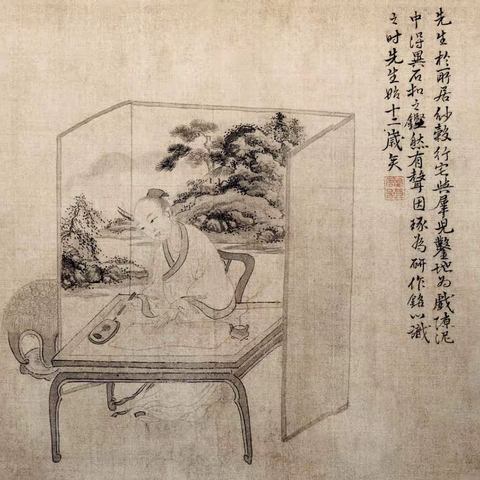 先生於所居紗縠行宅與羣兒鑿地為戲泥
中得異石扣之鏗然有聲因琢為研作銘以識
之时先生始十二歲矣